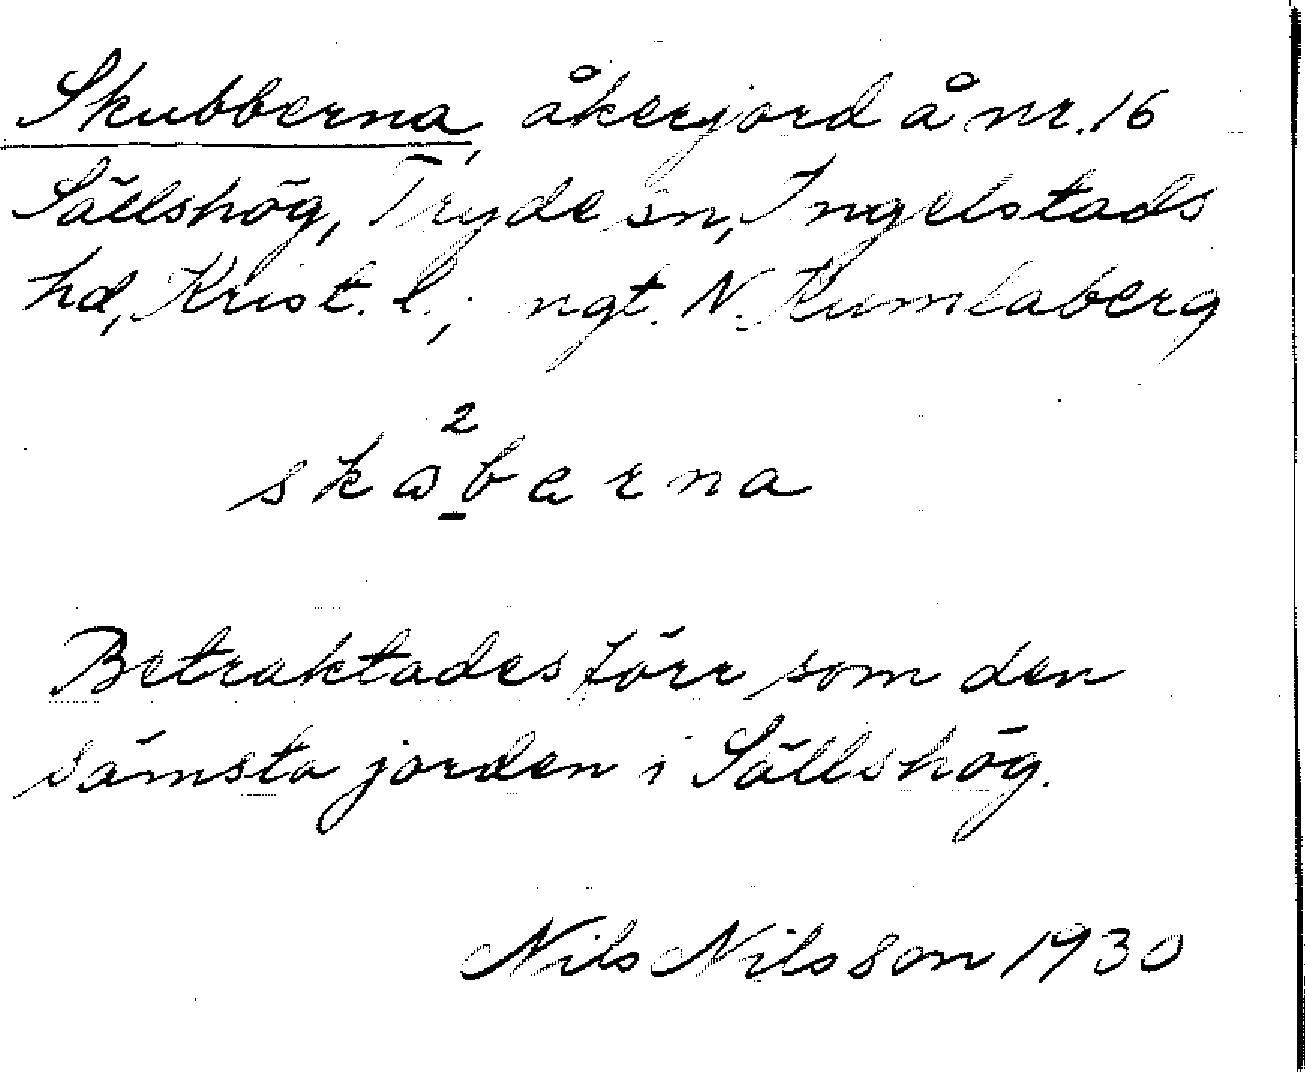 Skubberna, åkerjord å nr. 16
Sällshög, Tryde sn, Ingelstads
hd, Krist. l.; ngt. N. Kumlaberg
2
skaberna
Betraktades förr som den
sämsta jorden i Sällshög.
Nils Nilsson 1930